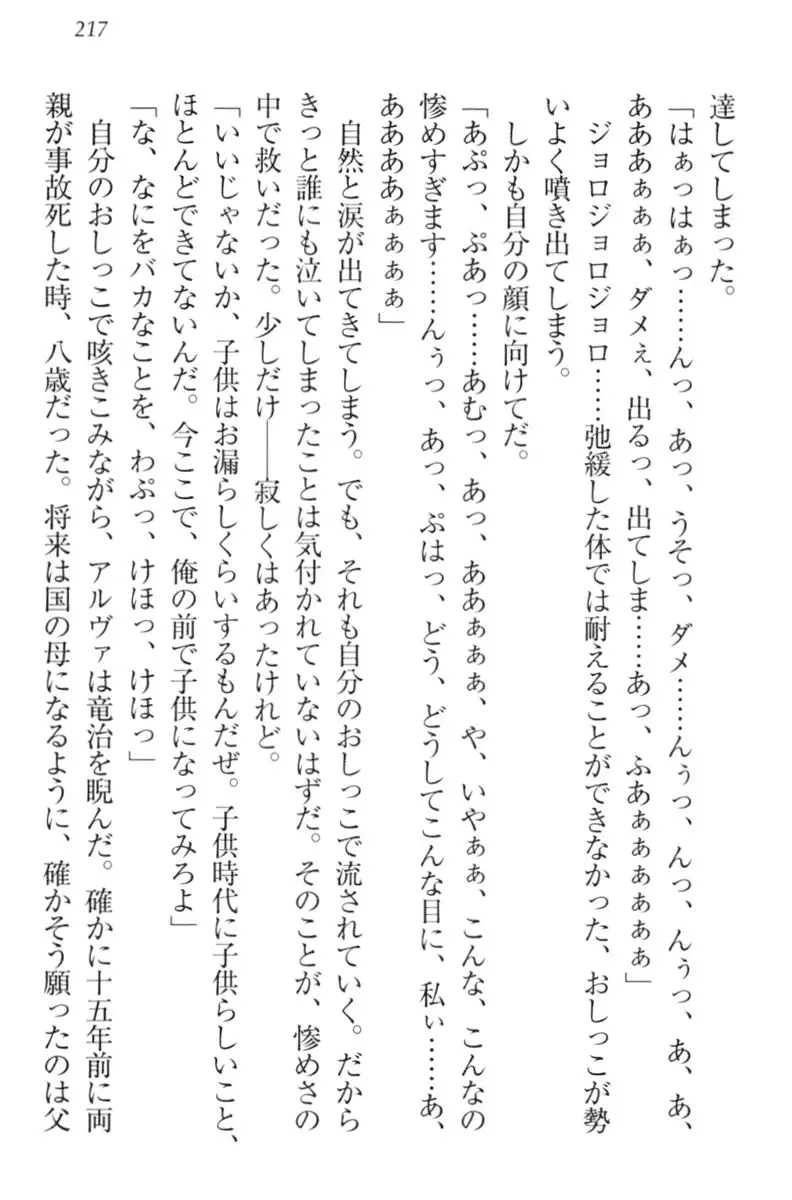 217
達してしまった。
「はぁっはぁっ……んっ、あっ、うそっ、ダメ……んぅっ、んっ、んぅっ、あ、あ、
あああぁぁぁ、ダメぇ、出るっ、出てしま……あっ、ふあぁぁぁぁぁぁ」
ジョロジョロジョロ……弛緩した体では耐えることができなかった、おしっこが勢
いよく噴き出てしまう。
しかも自分の顔に向けてだ。
「あぷっ、ぷあっ……あむっ、あっ、ああぁぁぁ、や、いやぁぁ、こんな、こんなの
惨めすぎます……んぅっ、あっ、ぷはっ、どう、どうしてこんな目に、私ぃ……あ、
ああああぁぁぁぁ」
自然と涙が出てきてしまう。でも、それも自分のおしっこで流されていく。だから
きっと誰にも泣いてしまったことは気付かれていないはずだ。そのことが、惨めさの
中で救いだった。少しだけ――寂しくはあったけれど。
「いいじゃないか、子供はお漏らしくらいするもんだぜ。子供時代に子供らしいこと、
ほとんどできてないんだ。今ここで、俺の前で子供になってみろよ」
「な、なにをバカなことを、わぷっ、けほっ、けほっ」
自分のおしっこで咳きこみながら、アルヴァは竜治を睨んだ。確かに十五年前に両
親が事故死した時、八歳だった。将来は国の母になるように、確かそう願ったのは父